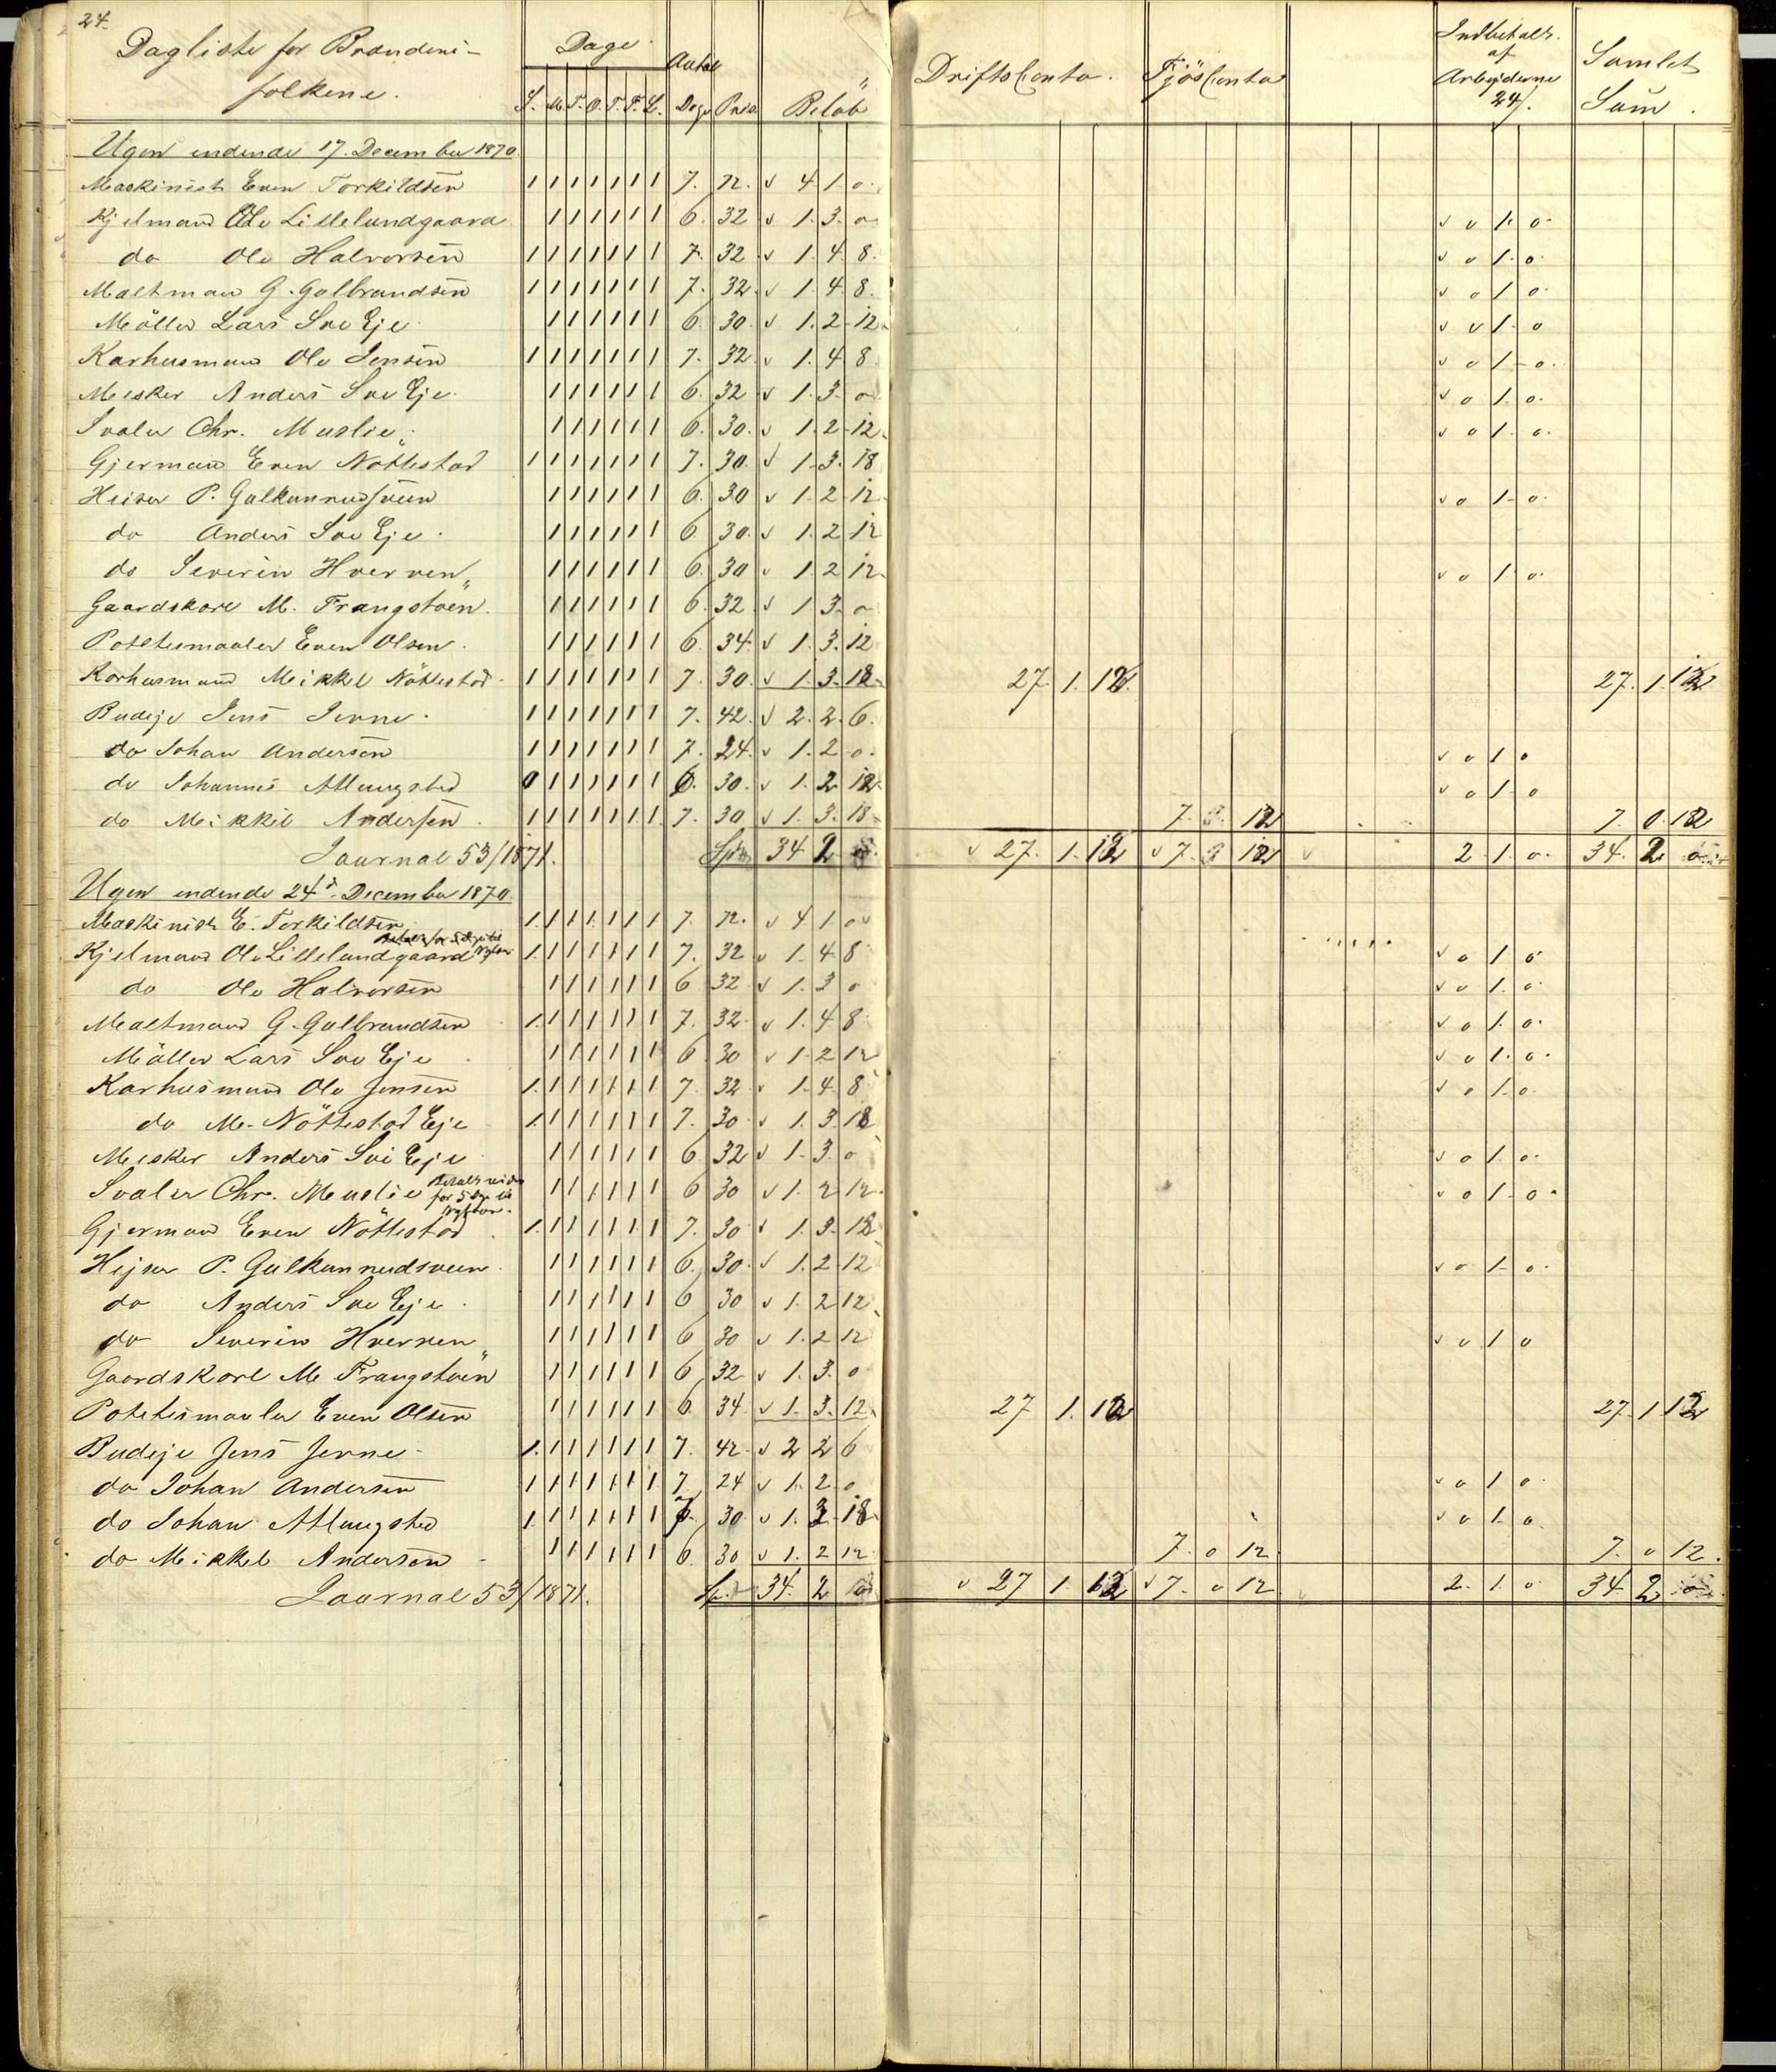 24.
Dagliste for Brænderi-
folkene.
Dage
Antal
S. M. T. O. T. F. L. Dage Pris Beløb
DriftsConto. FjösConto
Indbetalt
af
Arbejderne
24/.
Samlet
Sum.
Ugen endende 17. December 1870.
Maskinist Even Torkildsen 1 1 1 1 1 1 1 7. 72. v 4 1 0.
Kjelmand Ole Lillelundgaard 1 1 1 1 1 1 6. 32 v 1. 3. 0 v 0 1. 0.
do Ole Halvorsen 1 1 1 1 1 1 1 7. 32 v 1. 4. 8. v 0 1. 0.
Maltmand G. Gulbrandsen 1 1 1 1 1 1 1 7. 32. v 1. 4. 8. v 0 1 0.
Möller Lars Sve Eje. 1 1 1 1 1 1 6. 30. v 1. 2. 12. v 0 1. 0
Karhusmand Ole Jensen 1 1 1 1 1 1 1 7. 32. v 1. 4. 8. v 0 1. 0.
Mesker Anders Sve Eje. 1 1 1 1 1 1 6. 32 v 1. 3. 0 v 0 1. 0.
Svaler Chr. Muslie. 1 1 1 1 1 1 6. 30. v 1. 2. 12. v 0 1. 0.
Gjermand Even Nöttestad 1 1 1 1 1 1 1 7. 30. v 1. 3. 18
Heiser P. Gulkunrudsveen 1 1 1 1 1 1 6. 30 v 1. 2. 12. v 0 1. 0.
do Anders Sve Eje. 1 1 1 1 1 1 6 30. v 1. 2 12
do Severin Hverven 1 1 1 1 1 1 6. 30 v 1. 2 12. v 0 1. 0.
Gaardskarl M. Frangstöen. 1 1 1 1 1 1 6. 32. v 1 3. 0
Potetesmaaler Even Olsen. 1 1 1 1 1 1 6. 34. v 1. 3. 12
Karhusmand Mikkel Nöttestad 1 1 1 1 1 1 1 7. 30. v 1. 3. 18. 27. 1. 12. 27. 1. 12
Budeje Jens Jerne. 1 1 1 1 1 1 1 7. 42. v 2. 2. 6.
do Johan Andersen 1 1 1 1 1 1 1 7. 24. v 1. 2 0. v 0 1 0
do Johannes Atlungstad 0 1 1 1 1 1 1 6. 30. v 1. 2 12. v 0 1. 0
do Mikkel Andersen. 1 1 1 1 1 1 1 7. 30 v 1. 3. 18. 7. 0. 12 7. 0. 12
Journal 53/1871. Spd 34 2 0. v 27. 1. 12 v 7. 0 12 v 2. 1. 0. 34. 2. 0
Ugen endende 24de December 1870.
Maskinist E. Torkildsen 1 1 1 1 1 1 1 7. 72. v 4 1 0
Kjelmand Ole Lillelundgaard 1 1 1 1 1 1 1 7. 32 v 1. 4. 8 v 0 1 0.
do Ole Halvorsen 1 1 1 1 1 1 6 32 v 1. 3 0 v 0 1. 0.
Maltmand G. Gulbrandsen 1 1 1 1 1 1 1 7. 32. v 1. 4 8 v 0 1. 0.
Möller Lars Sve Eje 1 1 1 1 1 1 6 30 v 1. 2 12 v 0 1. 0.
Karhusmand Ole Jensen 1 1 1 1 1 1 1 7. 32. v 1. 4. 8 v 0 1. 0.
do M. Nöttestad Eje 1 1 1 1 1 1 1 7. 30. v 1. 3. 18
Mesker Anders Sve Eje 1 1 1 1 1 1 6 32 v 1. 3. 0 v 0 1. 0.
Svaler Chr. Muslie 1 1 1 1 1 1 6 30 v 1. 2 12. v 0 1. 0.
for 5 Dage til
Gjermand Even Nöttestad. 1 1 1 1 1 1 1 7. 30 v 1. 3. 18
Hejser P. Gulkunrudsveen. 1 1 1 1 1 1 6. 30. v 1. 2 12 v 0 1. 0.
do Anders Sve Eje. 1 1 1 1 1 1 6 30 v 1. 2 12
do Severin Hverven 1 1 1 1 1 1 6 30 v 1. 2 12 v 0 1 0
Gaardskarl M Frangstöen 1 1 1 1 1 1 6 32 v 1. 3. 0
Potetesmaaler Even Olsen 1 1 1 1 1 1 6. 34. v 1. 3. 12. 27 1. 12 27. 1 12
Budeje Jens Jerne 1 1 1 1 1 1 1 7. 42. v 2 2 6
do Johan Andersen 1 1 1 1 1 1 1 7 24 v 1. 2. 0 v 0 1. 0
do Johan Atlungstad 1 1 1 1 1 1 1 7. 30. v 1. 3. 18 v 0 1. 0
do Mikkel Andersen 1 1 1 1 1 1 6. 30 v 1. 2 12 7. 0 12. 7. 0 12.
Journal 53/1871. Sp. 34. 2 0 v 27 1. 12 v 7. 0 12 2. 1. 0 34. 2 0